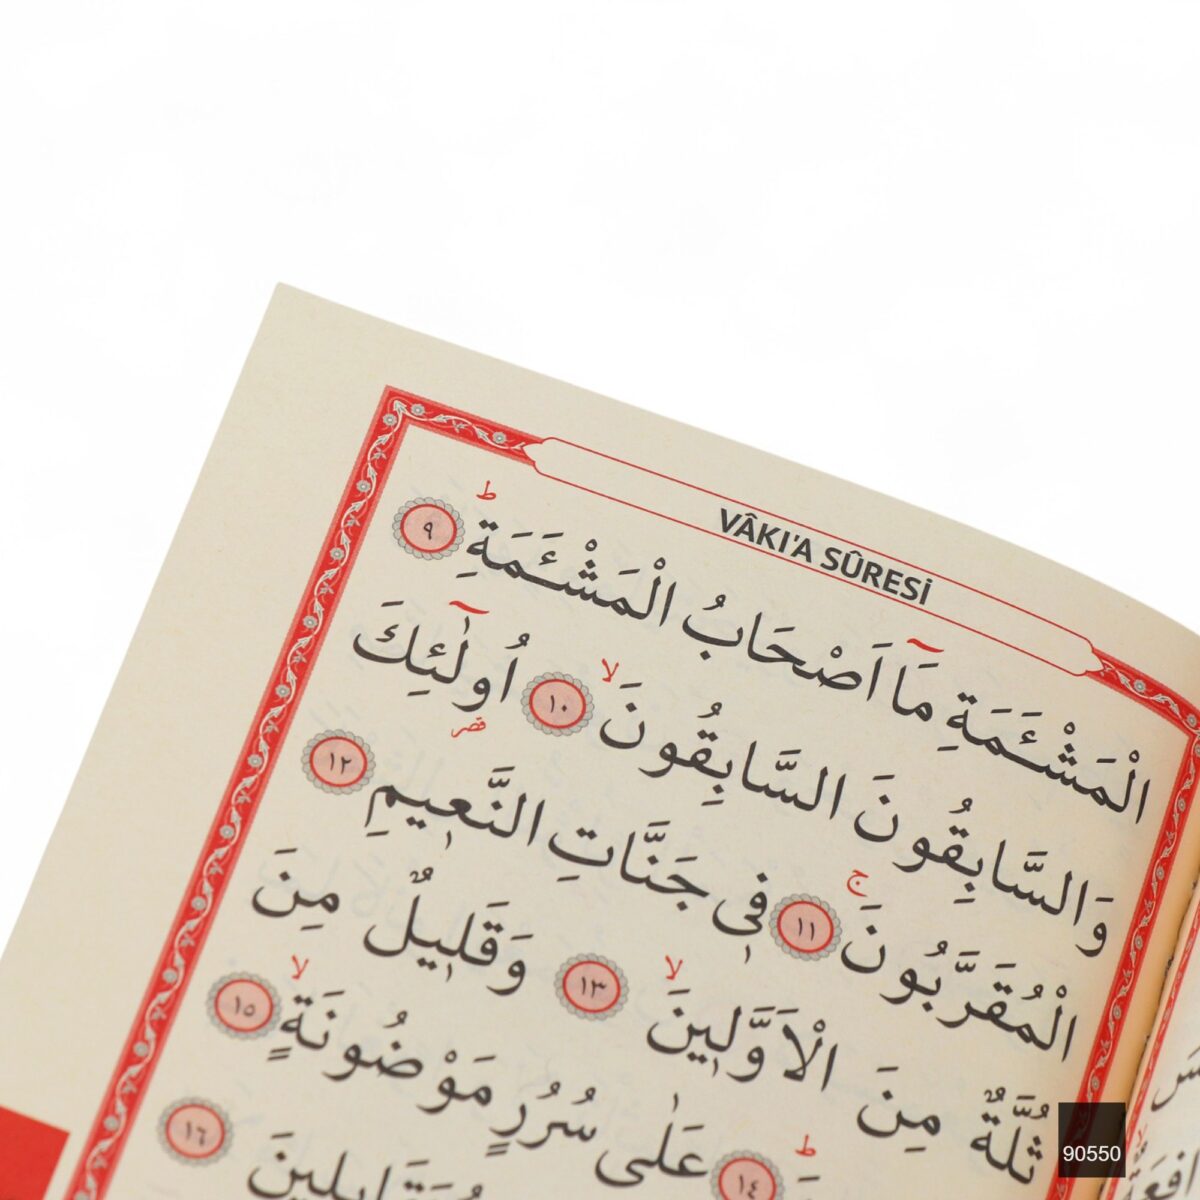 VÂKI'A SÛRESİ
الْمَشْـَٔمَةِ مَٓا اَصْحَابُ الْمَشْـَٔمَةِ ط ٩
وَالسَّابِقُونَ السَّابِقُونَ لا ١٠ اُولٰٓئِكَ قصر
الْمُقَرَّبُونَ ج ١١ ف۪ي جَنَّاتِ النَّع۪يمِ ١٢
ثُلَّةٌ مِنَ الْاَوَّل۪ينَ لا ١٣ وَقَل۪يلٌ مِنَ
ط ١٤ عَلٰى سُرُرٍ مَوْضُونَةٍ لا ١٥
١٦
90550